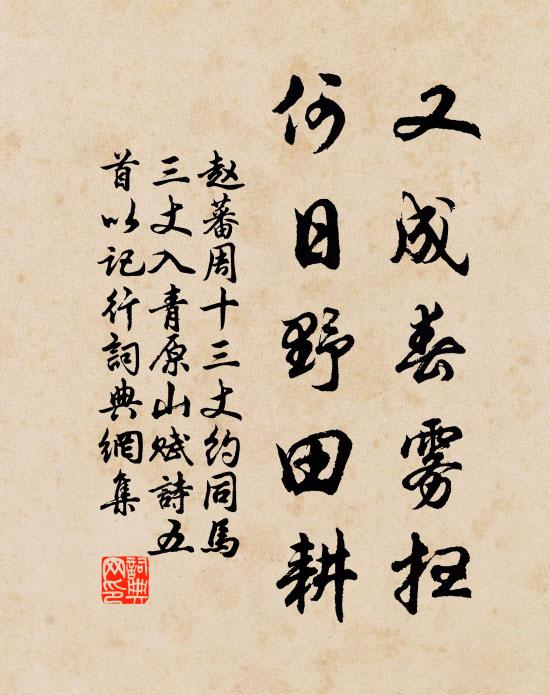 又成春雾枉
何日野田耕
赵蕃周十三丈约同馬
三丈入青原山赋詩五
首以记行詞典網集
詞典
网印